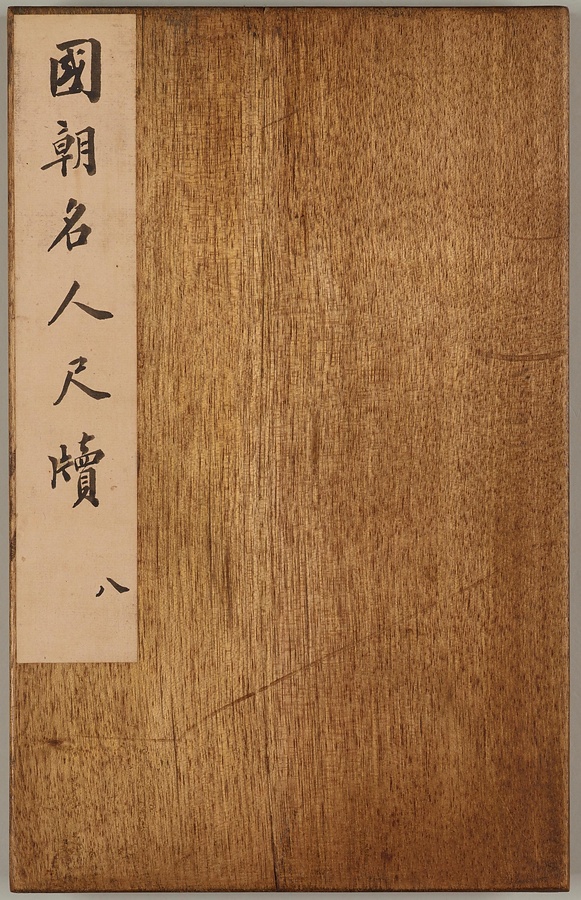 國朝名人尺牘
八